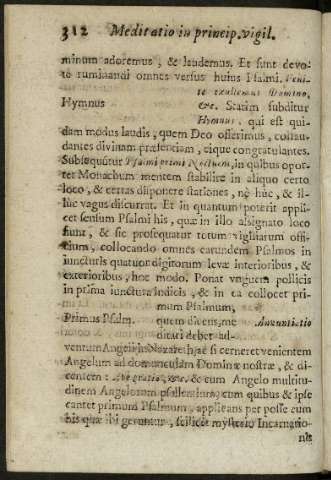 312 Meditatio in princip. vigil.
minum adoremus, & laudemus. Et sunt devo-
tè ruminandi omnes versus huius Psalmi. Veni-
te exultemus Domino,
Hymnus &c. Statim subditur
Hymnus, qui est qui-
dam modus laudis, quem Deo offerimus, collau-
dantes divinam præsentiam, eique congratulantes.
Subsequūtur Psalmi primi Nocturni, in quibus opor-
tet Monachum mentem stabilire in aliquo certo
loco, & certas disponere stationes, nè hùc, & il-
lùc vagus discurrat. Et in quantum poterit appli-
cet sensum Psalmi his, quæ in illo assignato loco
fiunt, & sic prosequatur totum vigiliarum offi-
cium, collocando omnes earundem Psalmos in
iuncturis quatuor digitorum levæ interioribus, &
exterioribus, hoc modo. Ponat vnguem pollicis
in prima iunctura Indicis, & in ea collocet pri-
mum Psalmum,
Primus Psalm. quem dicens, me Annuntiatio
ditari debet ad-
ventum Angeli in Nazareth, ac si cerneret venientem
Angelum ad domunculam Dominæ nostræ, & di-
centem: Ave gratia, &c. & cum Angelo multitu-
dinem Angelorum psallentium, cum quibus & ipse
cantet primum Psalmum, applicans per posse eum
his quæ ibi geruntur, scilicèt mysterio Incarnatio-
nis